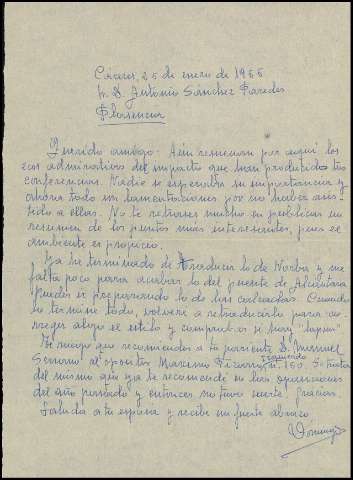 Cáceres, 25 de enero de 1966
Sr. D. Antonio Sánchez Paredes
Plasencia
Querido amigo: Aún resuenan por aquí los
ecos admirativos del impacto que han producido tus
conferencias. Nadie se esperaba su importancia y
ahora todo son lamentaciones por no haber asis-
tido a ellas. No te retrases mucho en publicar un
resumen de los puntos más interesantes, pues el
ambiente es propicio.
Ya he terminado de traducir lo de Norba y me
falta poco para acabar lo del puente de Alcántara
Puedes ir preparando lo de las calzadas. Cuando
lo termine todo, volveré a retraducirlo para co-
rregir algo el estilo y comprobar si hay "lapsus"
Te ruego que recomiendes a tu pariente D. Manuel
Serrano al opositor Maximo Pizarro
n. 150. Se trata
del mismo que ya te recomendé en las oposiciones
del año pasado y entonces no tuvo suerte. Gracias.
Saluda a tu esposa y recibe un fuerte abrazo
Domingo